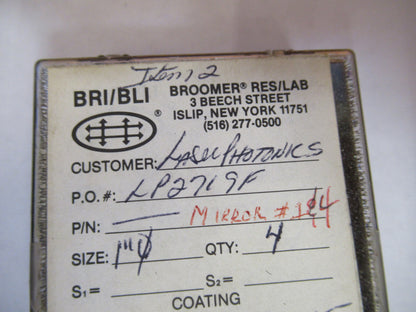 Item 2
BRI/BLI BROOMER® RES/LAB
3 BEECH STREET
ISLIP, NEW YORK 11751
(516) 277-0500
®
CUSTOMER: LASER PHOTONICS
P.O. #: LP2719F
P/N: — MIRROR #
SIZE: 1"ϕ QTY: 4
S1 = S2 =
COATING